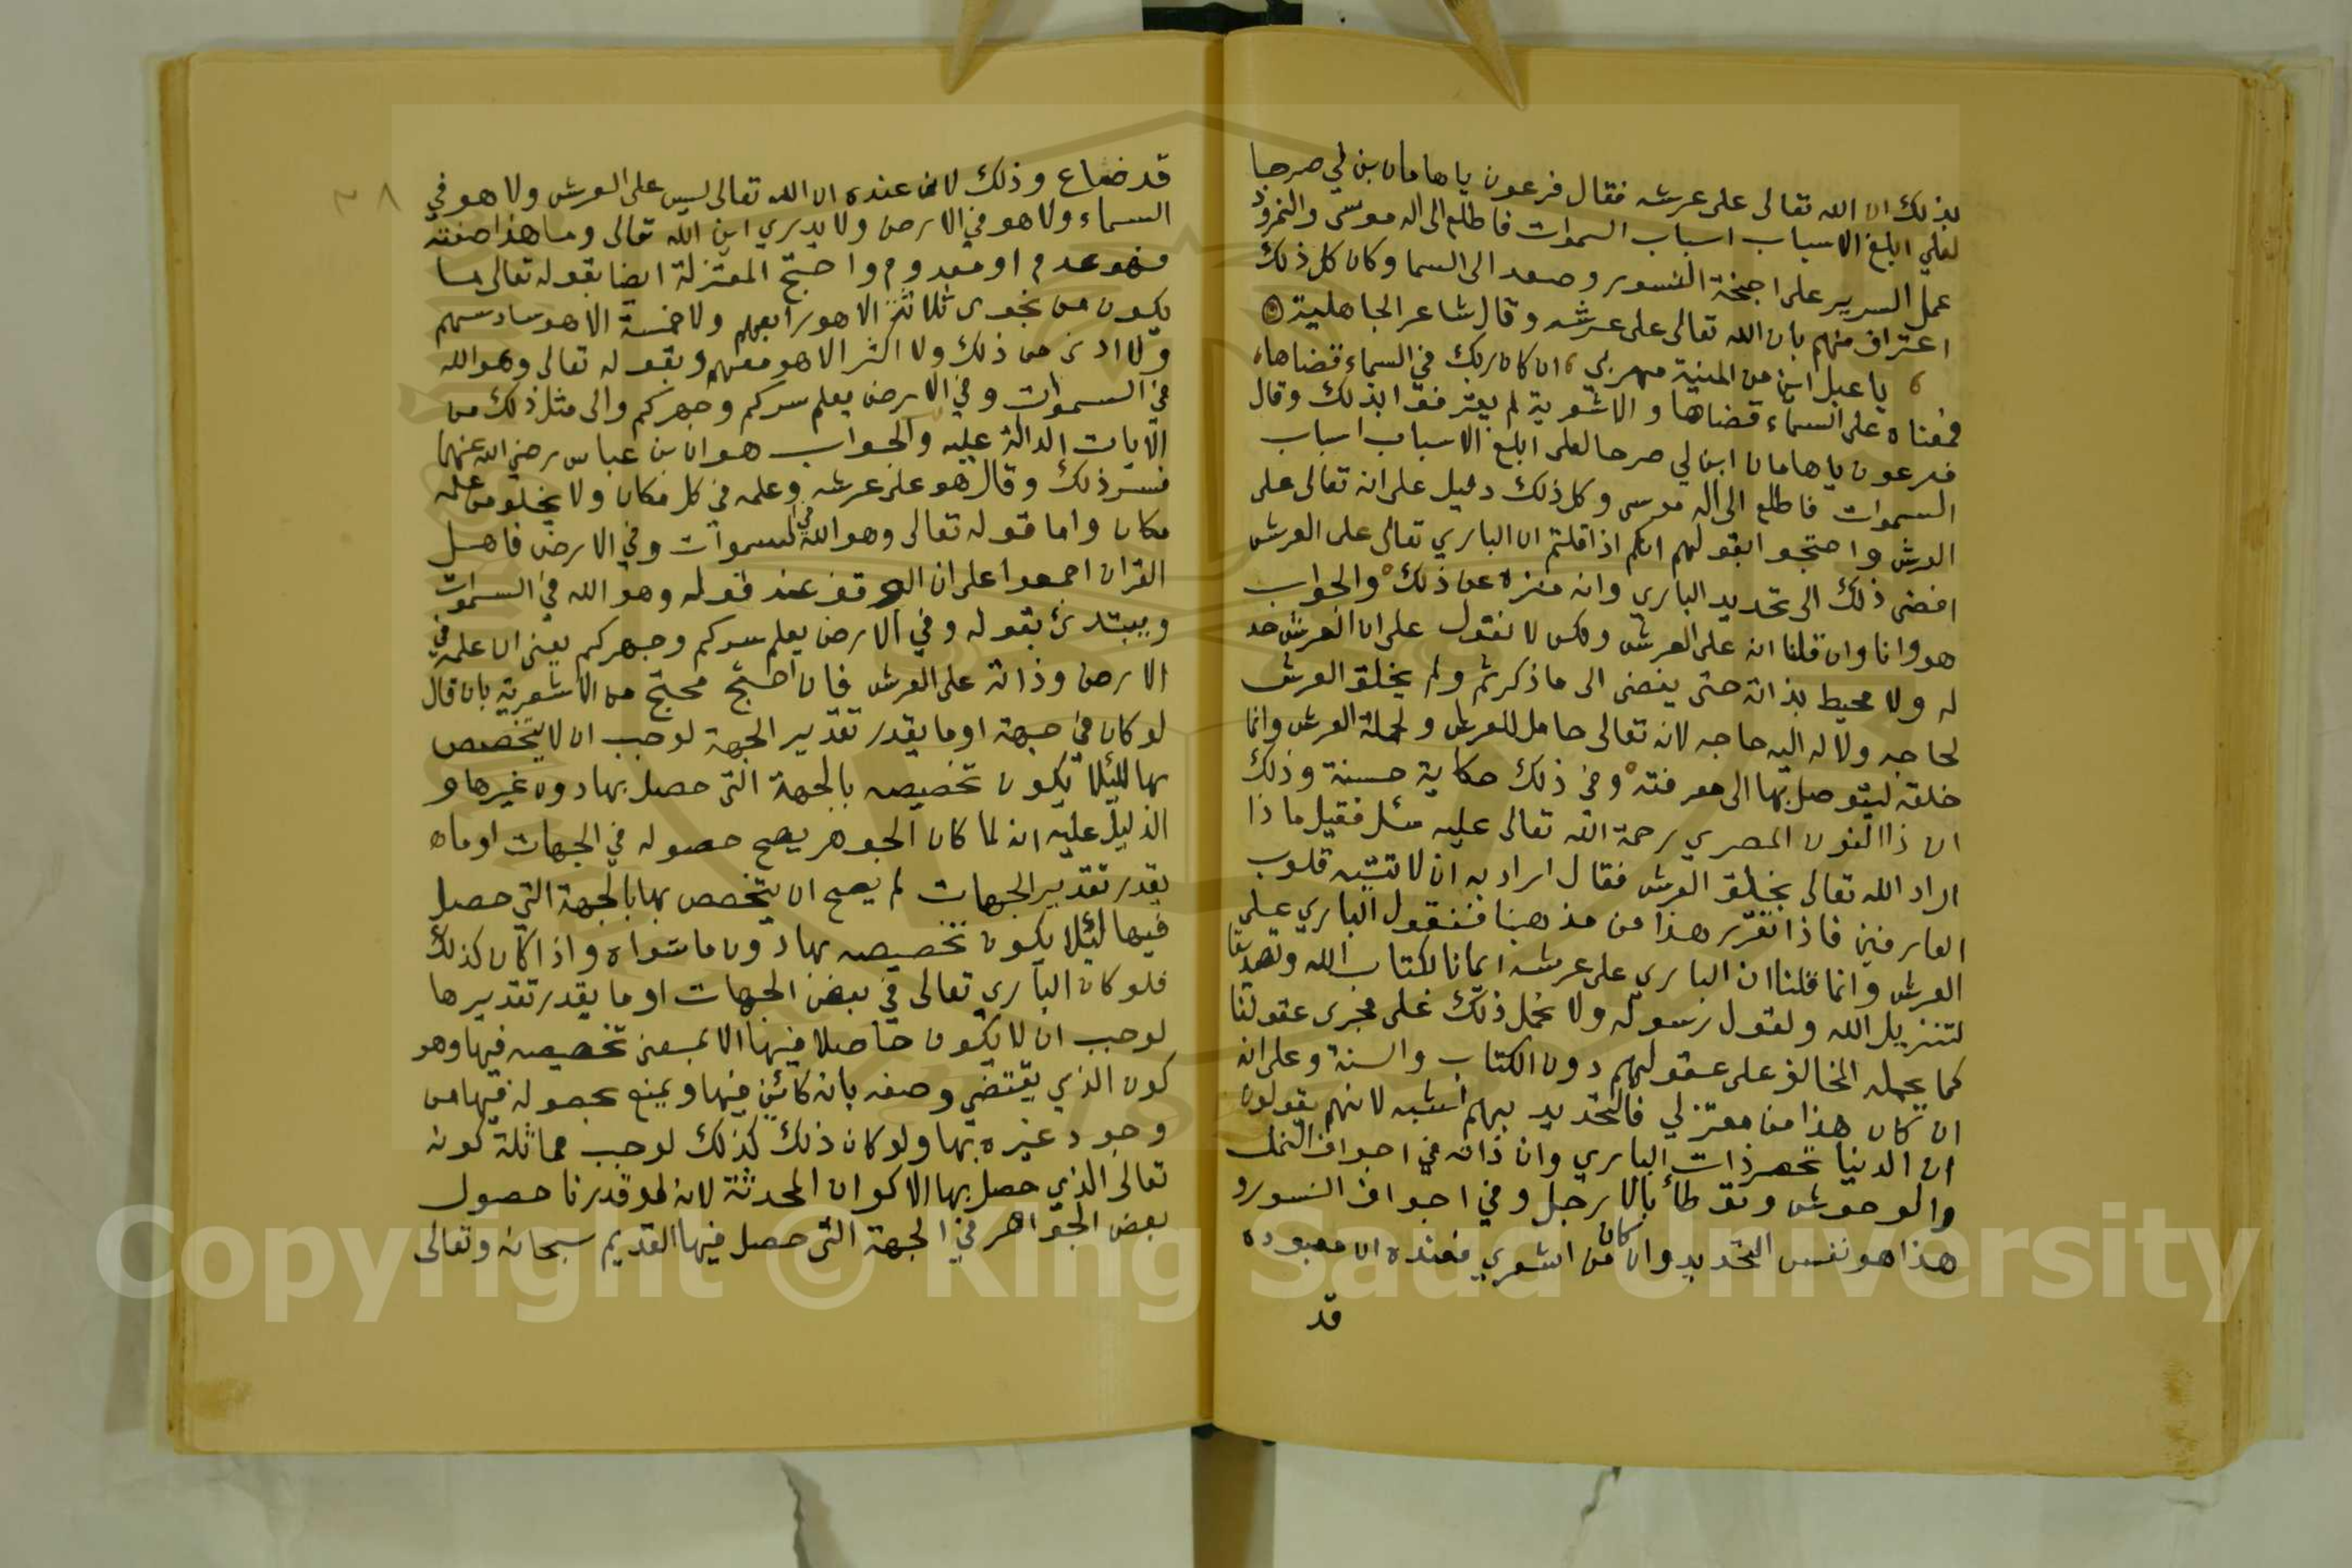 بذلك ان الله تعالى على عرشه فقال فرعون ياهامان ابن لي صرحا
لعلي ابلغ الاسباب اسباب السموات فاطلع الى اله موسى والنمرود
عمل السرير على اجنحة النسور وصعد الى السما وكان كل ذلك
اعتراف منهم بان الله تعالى على عرشه وقال شاعر الجاهلية
يا عبل اين من المنية مهربي ان كان ربك في السماء قضاها
فمعناه على السماء قضاها والاشعرية لم يعترفوا بذلك وقال
فرعون ياهامان ابن لي صرحا لعلي ابلغ الاسباب اسباب
السموات فاطلع الى اله موسى وكل ذلك دليل على انه تعالى على
العرش واحتجوا بقولهم انكم اذا قلتم ان الباري تعالى على العرش
افضى ذلك الى تحديد الباري وانه منزه عن ذلك والجواب
هو وانا وان قلنا انه على العرش ولكن لا نقول على ان العرش حد
له ولا محيط بذاته حتى يفضى الى ما ذكرتم ولم يخلق العرش
لحاجه ولا له اليه حاجه لانه تعالى حامل للعرش ولحملة العرش وانما
خلقه ليتوصل بها الى معرفته وفي ذلك حكاية حسنة وذلك
ان ذا النون المصري رحمة الله تعالى عليه سئل فقيل ماذا
اراد الله تعالى بخلق العرش فقال اراد به ان لا تتيه قلوب
العارفين فاذا تقرر هذا من مذهبنا فنقول الباري على
العرش وانما قلنا ان الباري على عرشه ايمانا لكتاب الله وتصديقا
لتنزيل الله ولقول رسوله ولا نحمل ذلك على مجرى عقولنا
كما يحمله المخالف على عقولهم دون الكتاب والسنة وعلى انه
ان كان هذا من معتزلي فالتحديد بهم اشبه لانهم يقولون
ان الدنيا تحصر ذات الباري وان ذاته في اجواف النمل
والوحوش وتوطأ بالارجل وفي اجواف النسور و
هذا هو نفس التحديد وان كان من اشعري فعنده ان معبوده
قد
قد ضاع وذلك لان عنده ان الله تعالى ليس على العرش ولا هو في
السماء ولا هو في الارض ولا يدري اين الله تعالى وما هذا صفته
فهو عدم او معدوم واحتج المعتزلة ايضا بقوله تعالى ما
يكون من نجوى ثلاثة الا هو رابعهم ولا خمسة الا هو سادسهم
ولا ادنى من ذلك ولا اكثر الا هو معهم وبقوله تعالى وهو الله
في السموات وفي الارض يعلم سركم وجهركم والى مثل ذلك من
الايات الدالة عليه والجواب هو ان بن عباس رضي الله عنهما
فسر ذلك وقال هو على عرشه وعلمه في كل مكان ولا يخلو من علمه
مكان واما قوله تعالى وهو الله في السموات وفي الارض فاهل
القران اجمعوا على ان الوقف عند قوله وهو الله في السموات
ويبتدئ بقوله وفي الارض يعلم سركم وجهركم يعني ان علمه في
الارض وذاته على العرش فان احتج محتج من الاشعرية بان قال
لو كان في جهة او ما يقدر تقدير الجهة لوجب ان لا يتخصص
بها لئلا يكون تخصيصه بالجهة التي حصل بها دون غيرها و
الدليل عليه انه لما كان الجوهر يصح حصوله في الجهات او ما
يقدر تقدير الجهات لم يصح ان يتخصص بها بالجهة التي حصل
فيها لئلا يكون تخصيصه بها دون ما سواه واذا كان كذلك
فلو كان الباري تعالى في بعض الجهات او ما يقدر تقديرها
لوجب ان لا يكون حاصلا فيها الا بمعنى تخصيصه فيها وهو
كون الذي يقتضي وصفه بانه كائن فيها ويمنع بحصوله فيها من
وجود غيره بها ولو كان ذلك كذلك لوجب مماثلة كونه
تعالى الذي حصل بها الاكوان المحدثة لانه لو قدرنا حصول
بعض الجواهر في الجهة التي حصل فيها القديم سبحانه وتعالى
٣٨
Copyright © King Saud University